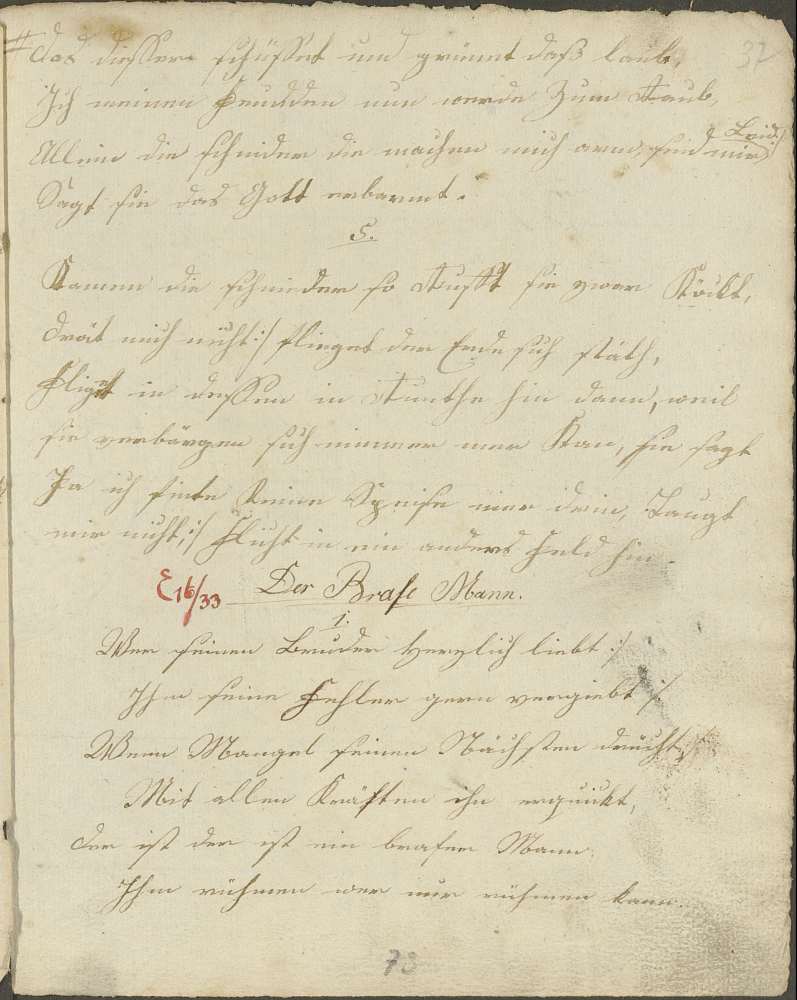 37
# das diesser schüsset und grünnt daß laub,
Ich meinen Freudden nun werde Zum Raub,
Allein die schneider die machen mich arm, seid mir Leid
Sagt sie das Gott erbarmt.
5.
Kamen die schneider so sie zwar
mich nicht :/ flieget der Erde sich stäth,
Flieget in dessen in hin dann, weil
sie verbärgen sich nimmer mer Kan, sie sagt
Ja ich finte Keine Speise mer drin, Taugt
mir nicht, :/ Flucht in ein anders Feld hin.
E16/33 Der Brafe Mann.
1.
Wer seinen Bruder Herzlich liebt :/
Ihm seine Fehler gern vergiebt :/
Wenn Mangel seinen Nächsten drückt,
Mit allen Kräften ihn erquickt,
der ist der ist ein brafer Mann
Ihm rühmen wer nur rühmen kann.
73